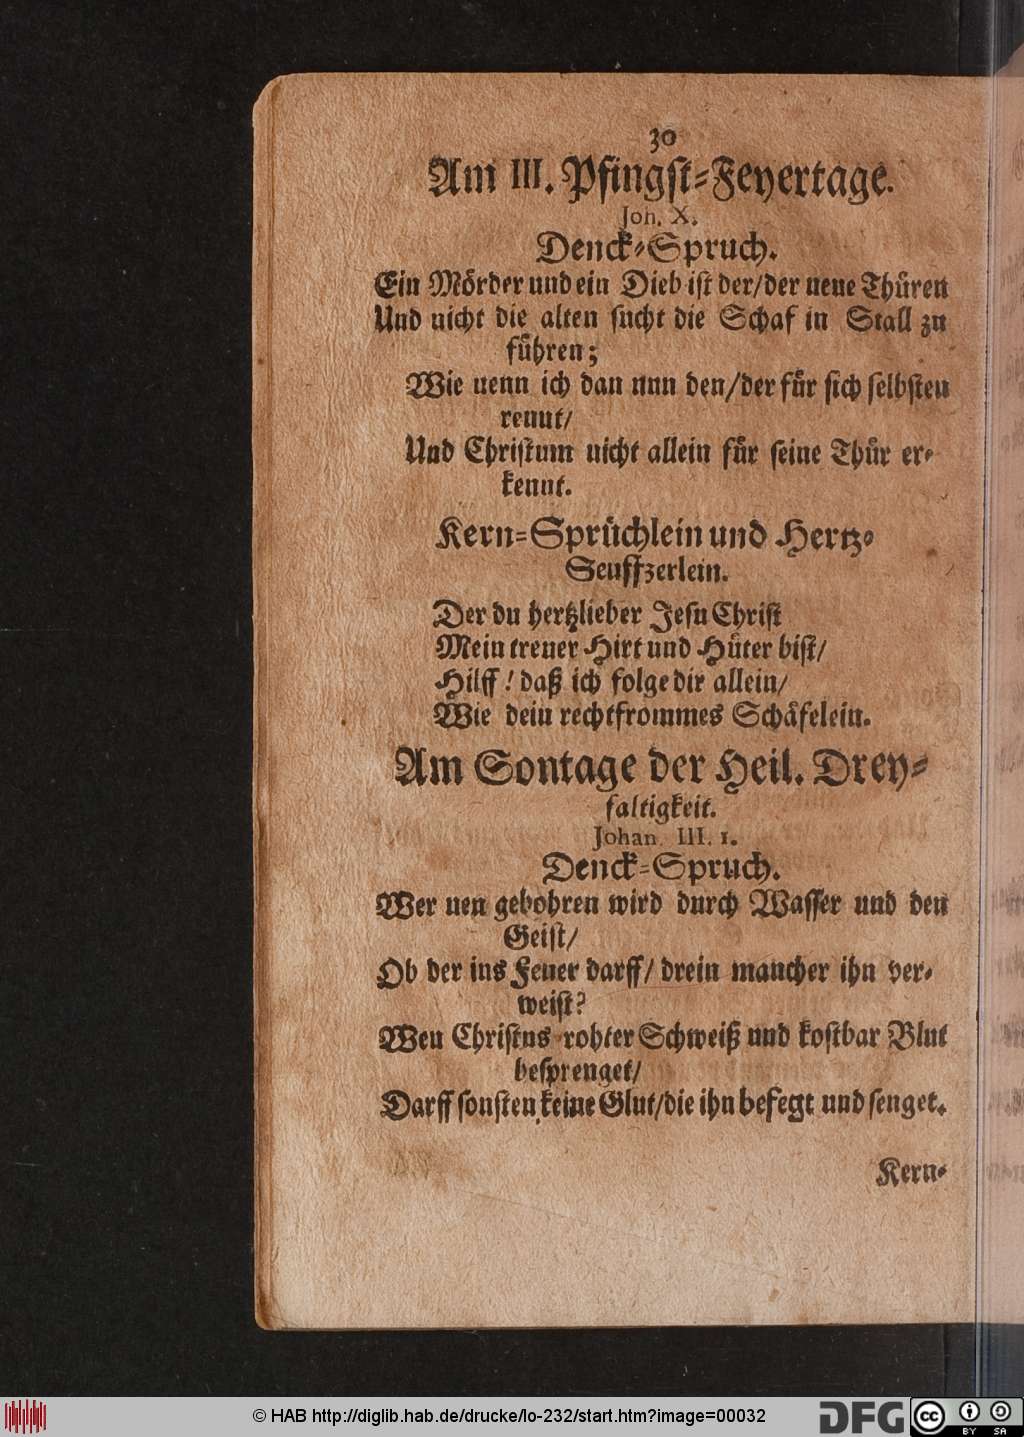 30
Am III. Pfingst-Feyertage.
Joh. X.
Denck-Spruch.
Ein Mörder und ein Dieb ist der/der neue Thüren
Und nicht die alten sucht die Schaf in Stall zu
führen;
Wie nenn ich dan nun den/der für sich selbsten
rennt/
Und Christum nicht allein für seine Thür er-
kennt.
Kern-Sprüchlein und Hertz-
Seuffzerlein.
Der du hertzlieber Jesu Christ
Mein treuer Hirt und Hüter bist/
Hilff! daß ich folge dir allein/
Wie dein rechtfrommes Schäfelein.
Am Sontage der Heil. Drey-
faltigkeit.
Johan. III. 1.
Denck-Spruch.
Wer neu gebohren wird durch Wasser und den
Geist/
Ob der ins Feuer darff/ drein mancher ihn ver-
weist?
Wen Christus rohter Schweiß und kostbar Blut
besprenget/
Darff sonsten keine Glut/die ihn befegt und senget.
Kern-
© HAB http://diglib.hab.de/drucke/lo-232/start.htm?image=00032
DFG
cc
BY SA